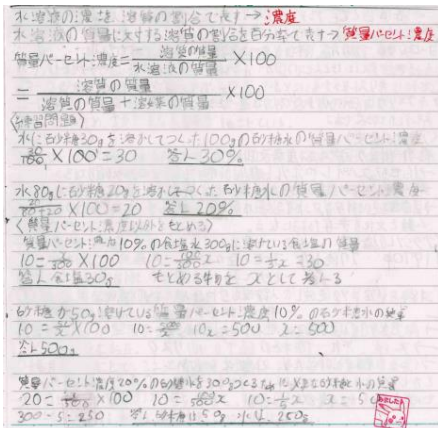 水溶液の濃さを溶質の割合で表す→濃度
水溶液の質量に対する溶質の割合を百分率で表す→質量パーセント濃度
質量パーセント濃度=溶質の質量/水溶液の質量×100
=溶質の質量/溶質の質量+溶媒の質量×100
〈練習問題〉
水に砂糖30gを溶かしてつくった100gの砂糖水の質量パーセント濃度
30/100×100=30 答え30%
水80gに砂糖20gを溶かしてつくった砂糖水の質量パーセント濃度
20/80+20×100=20 答え20%
〈質量パーセント濃度以外をもとめる〉
質量パーセント濃度10%の食塩水300gに溶けている食塩の質量
10=x/300×100 10=x 10=1/3x x=30
答え食塩30g もとめる物をxとして考える
砂糖が50g溶けている質量パーセント濃度10%の砂糖水の質量
10=×100 10= 10x=500 x=500
答え500g
質量パーセント濃度20%の砂糖水を300gつくるために必要な砂糖と水の質量
20=×100 10=x 10=x x=50
300-5=250 答え砂糖は50g 水は250g